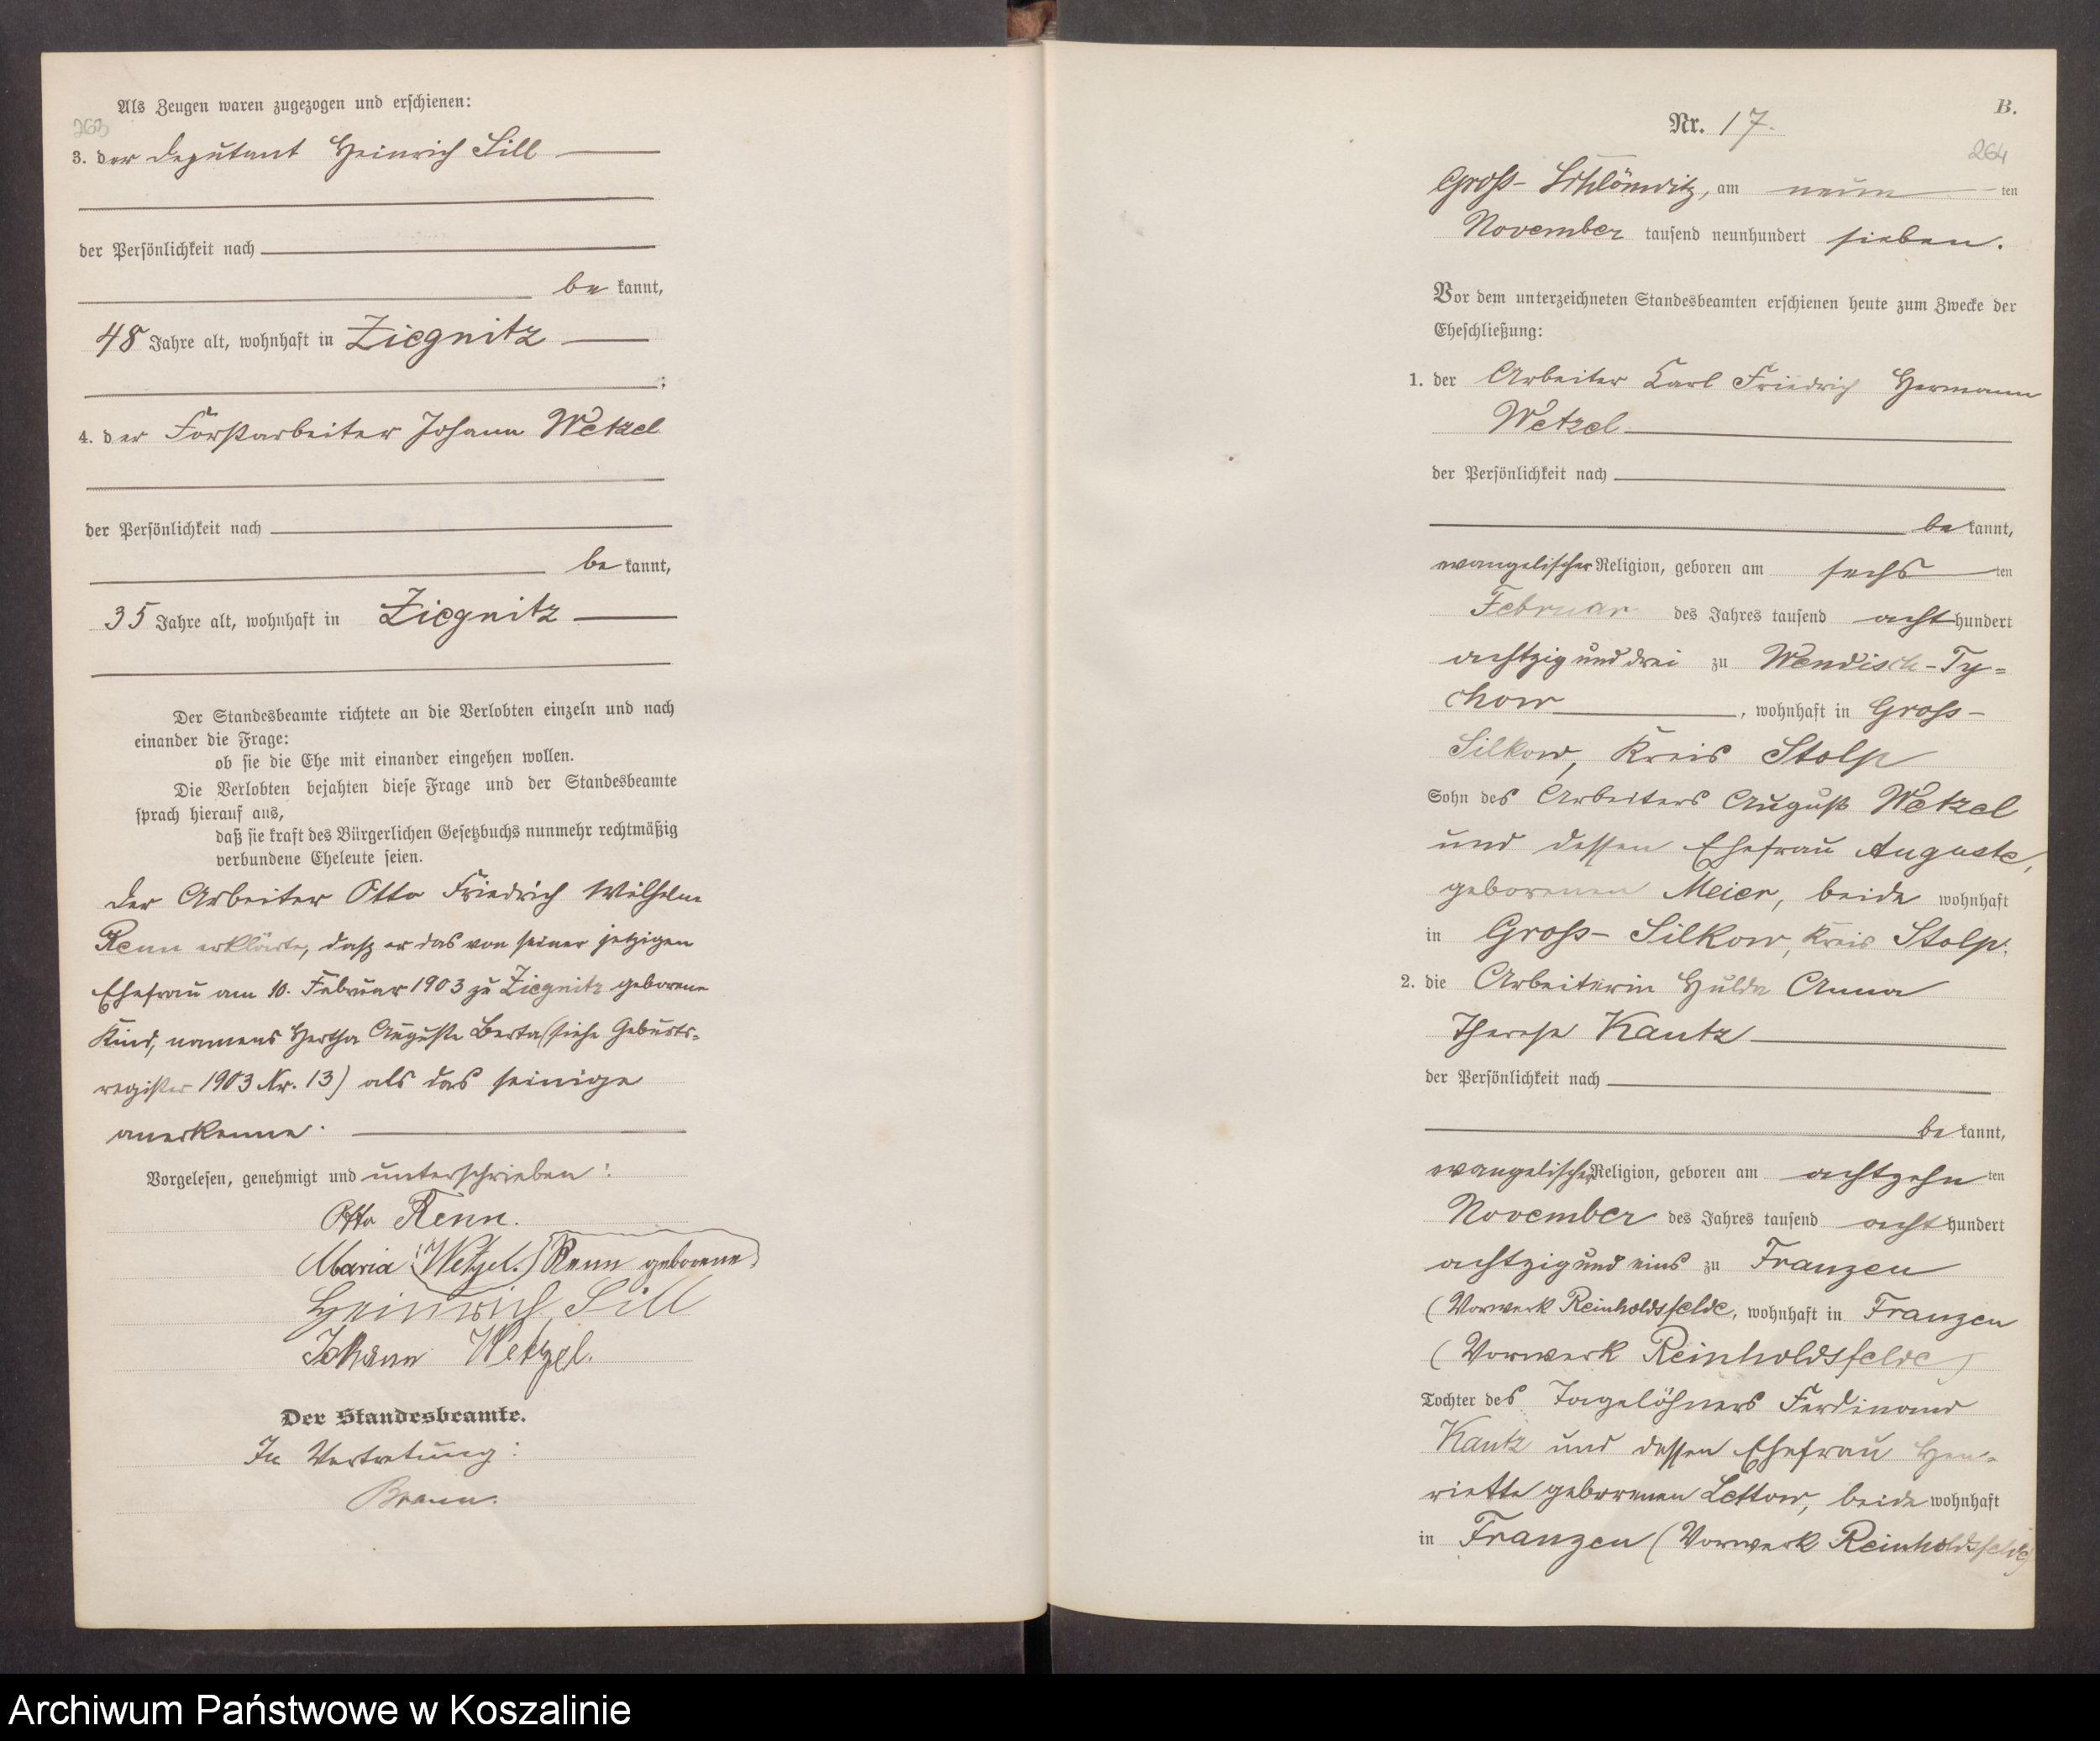 Als Zeugen waren zugezogen und erschienen:
263
3. der Deputant Heinrich Sill
der Persönlichkeit nach
be kannt,
48 Jahre alt, wohnhaft in Ziegnitz
;
4. der Forstarbeiter Johann Wetzel
der Persönlichkeit nach
be kannt,
35 Jahre alt, wohnhaft in Ziegnitz
Der Standesbeamte richtete an die Verlobten einzeln und nach
einander die Frage:
ob sie die Ehe mit einander eingehen wollen.
Die Verlobten bejahten diese Frage und der Standesbeamte
sprach hierauf aus,
daß sie kraft des Bürgerlichen Gesetzbuchs nunmehr rechtmäßig
verbundene Eheleute seien.
Der Arbeiter Otto Friedrich Wilhelm
Renn erklärte, dasz er das von seiner jetzigen
Ehefrau am 10. Februar 1903 zu Ziegnitz geborene
Kind, namens Hertha Auguste Berta (siehe Geburts-
register 1903 Nr. 13) als das seinige
anerkenne.
Vorgelesen, genehmigt und unterschrieben:
Otto Renn.
Maria (Wetzel.) Renn geborene
Heinrich Sill
Johann Wetzel.
Der Standesbeamte.
In Vertretung:
Braun.
B.
Nr. 17.
264
Gross-Schlönwitz, am neun ten
November tausend neunhundert sieben.
Vor dem unterzeichneten Standesbeamten erschienen heute zum Zwecke der
Eheschließung:
1. der Arbeiter Karl Friedrich Hermann
Wetzel
der Persönlichkeit nach
be kannt,
evangelischer Religion, geboren am sechs ten
Februar des Jahres tausend acht hundert
achtzig und drei zu Wendisch-Ty=
chow, wohnhaft in Gross-
Silkow, Kreis Stolp
Sohn des Arbeiters August Wetzel
und dessen Ehefrau Auguste,
geborenen Meier, beide wohnhaft
in Gross-Silkow, Kreis Stolp.
2. die Arbeiterin Hulda Anna
Therese Kautz
der Persönlichkeit nach
be kannt,
evangelischer Religion, geboren am achtzehn ten
November des Jahres tausend acht hundert
achtzig und eins zu Franzen
(Vorwerk Reinholdsfelde, wohnhaft in Franzen
(Vorwerk Reinholdsfelde)
Tochter des Tagelöhners Ferdinand
Kautz und dessen Ehefrau Hen-
riette geborenen Lettow, beide wohnhaft
in Franzen (Vorwerk Reinholdsfelde)
Archiwum Państwowe w Koszalinie